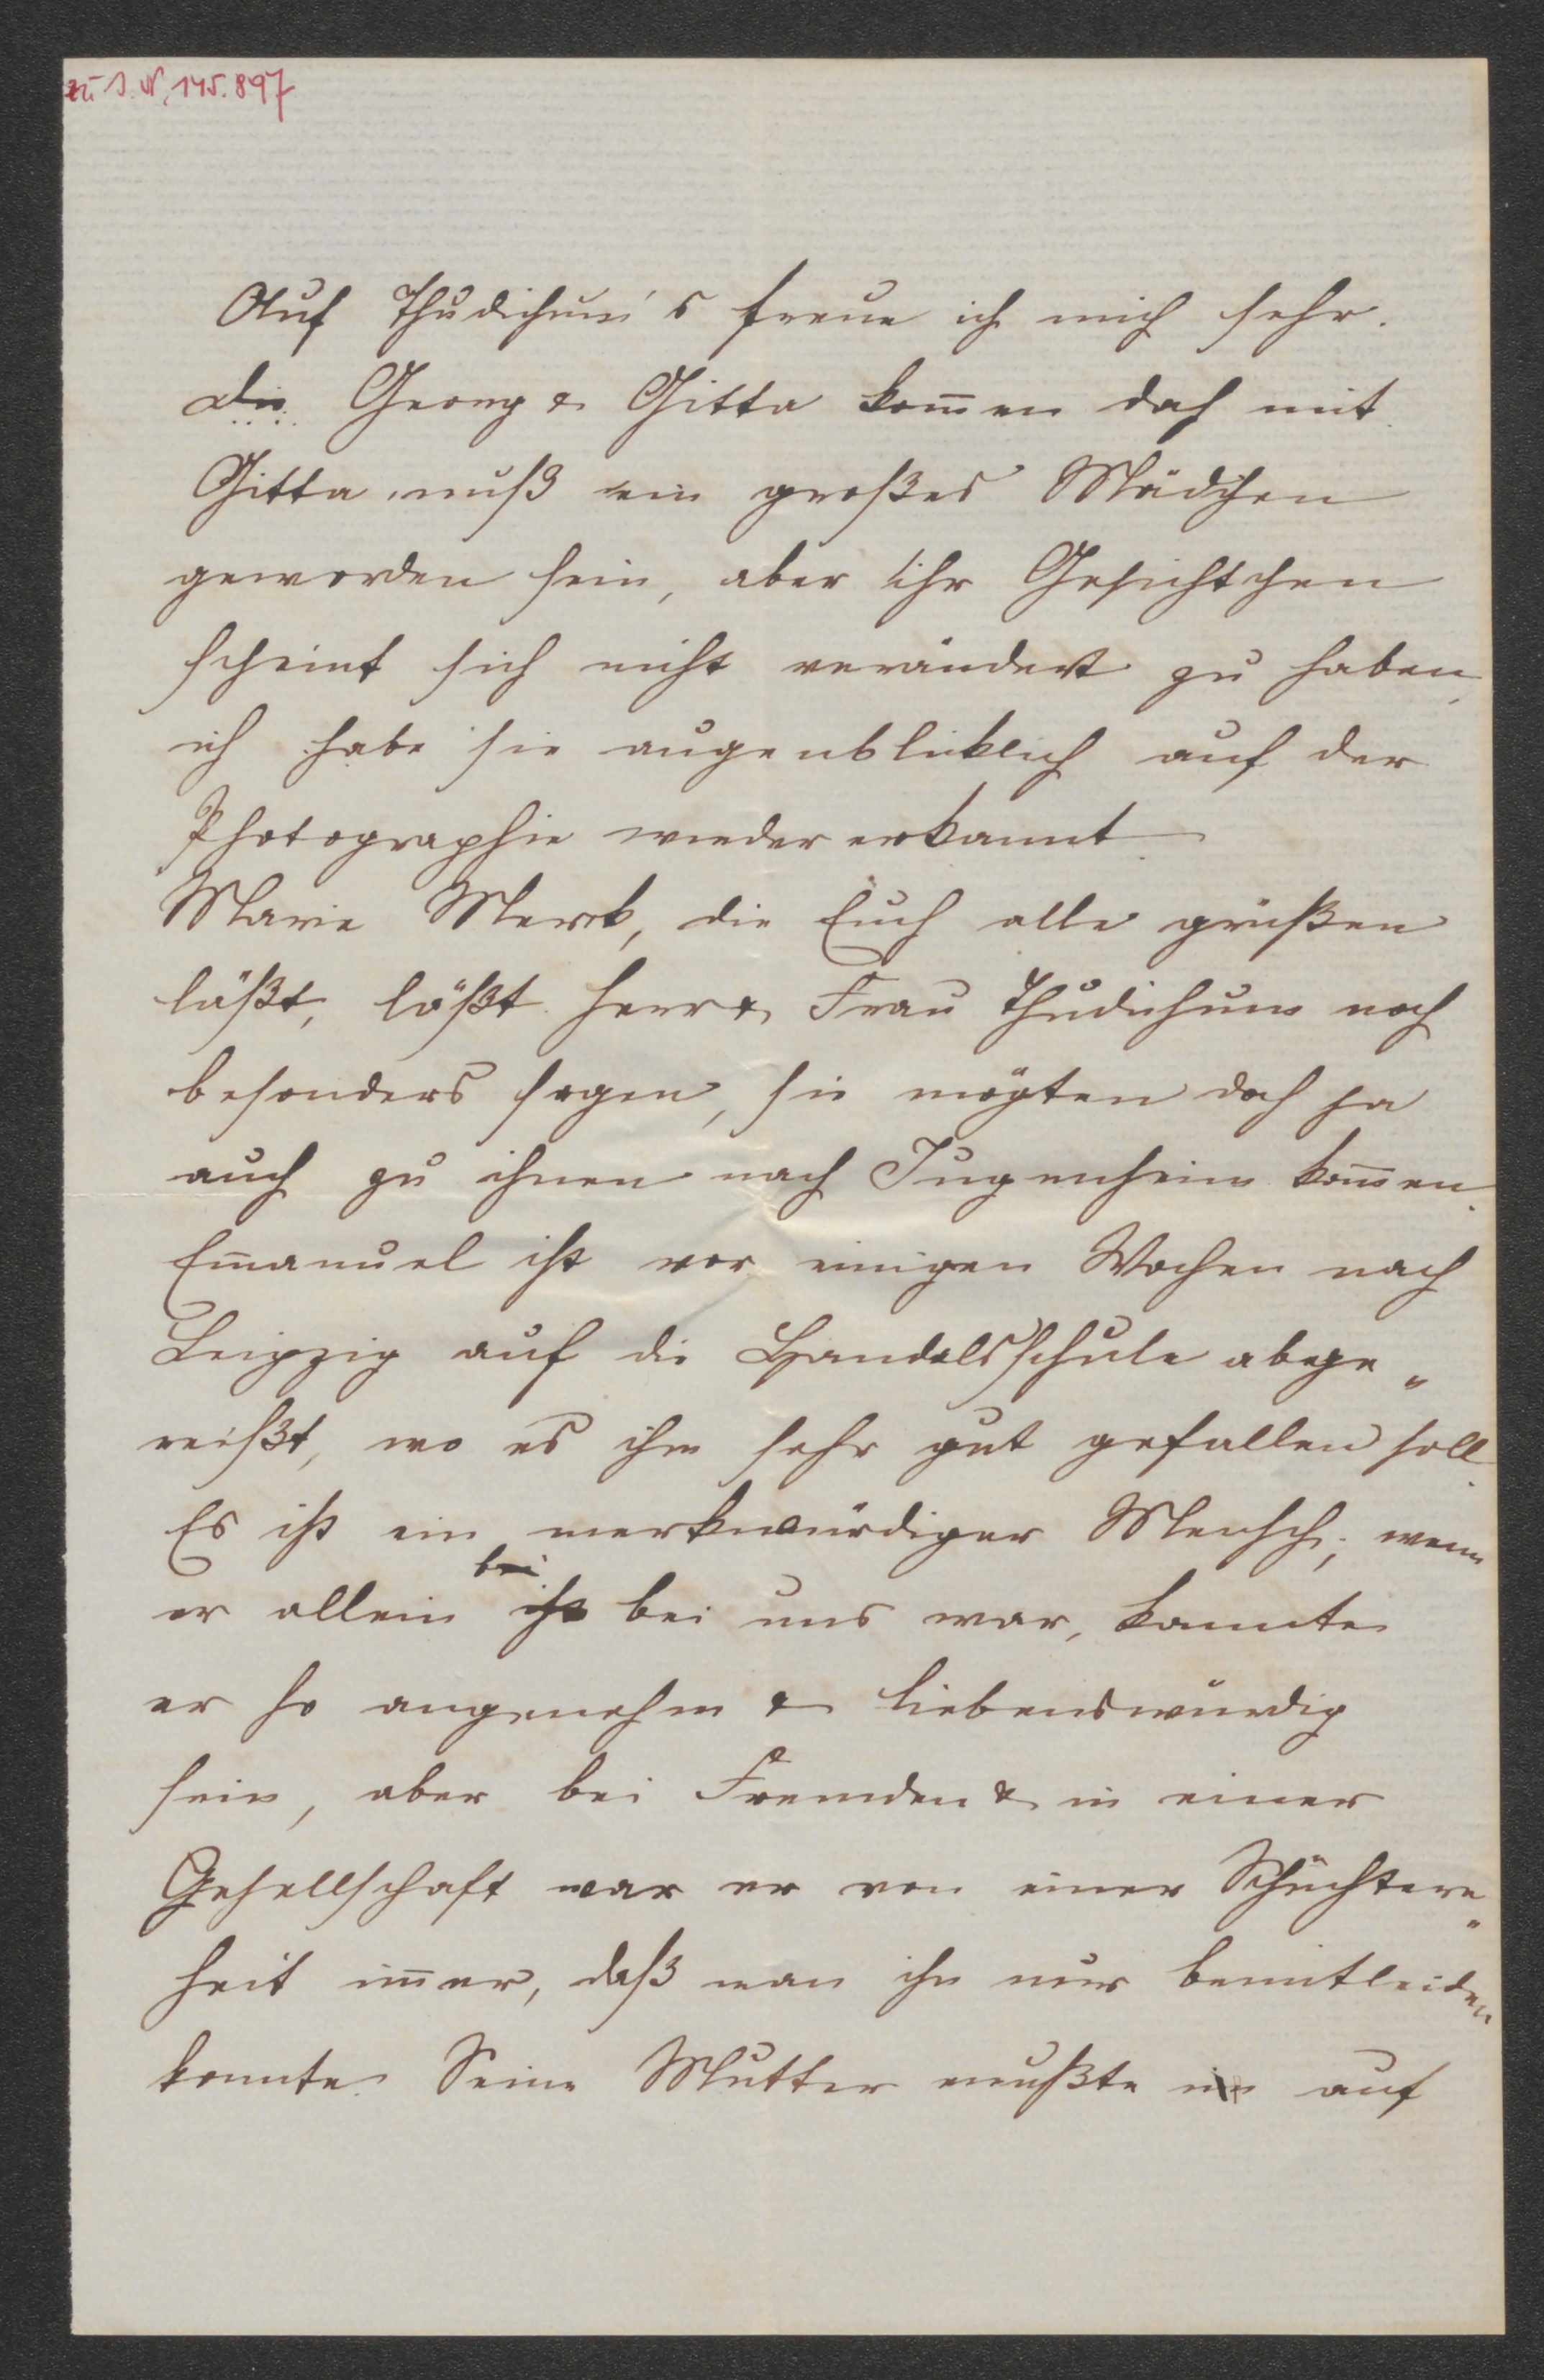 zu I.N. 145.897
Auf Thudichum's freue ich mich sehr.
Die Georg & Gitta kom̅en doch mit.
Gitta muß ein großes Mädchen
geworden sein, aber ihr Gesichtchen
scheint sich nicht verändert zu haben,
ich habe sie augenblicklich auf der
Photographie wieder erkannt.
Marie Merck, die Euch alle grüßen
läßt, läßt Herr & Frau Thudichum noch
besonders sagen, sie mögten doch ja
auch zu ihnen nach Jugenheim kom̅en.
Em̅anuel ist vor einigen Wochen nach
Leipzig auf die Handelsschule abge„
reißt, wo es ihm sehr gut gefallen soll.
Es ist ein merkwürdiger Mensch; wenn
bei
er allein ist bei uns war, konnte
er so angenehm & liebenswürdig
sein, aber bei Fremden & in einer
Gesellschaft war er von einer Schüchtern„
heit im̅er, daß man ihn nur bemitleiden
konnte. Seine Mutter mußte auf